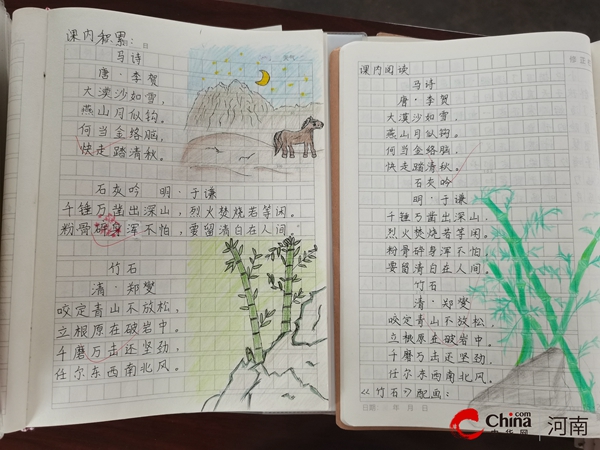 课内积累:
日
天气
马诗
唐·李贺
大漠沙如雪,
燕山月似钩。
何当金络脑,
快走踏清秋。
石灰吟 明·于谦
千锤万凿出深山,烈火焚烧若等闲。
粉骨碎身浑不怕,要留清白在人间。
竹石
清·郑燮
咬定青山不放松,
立根原在破岩中。
千磨万击还坚劲,
任尔东西南北风。
课内阅读
马诗
唐·李贺
大漠沙如雪,
燕山月似钩。
何当金络脑,
快走踏清秋。
石灰吟
明·于谦
千锤万凿出深山,
烈火焚烧若等闲。
粉骨碎身浑不怕,
要留清白在人间。
竹石
清·郑燮
咬定青山不放松,
立根原在破岩中。
千磨万击还坚劲,
任尔东西南北风。
《竹石》配画:
日期: 年 月 日
China.com
中华网
河南